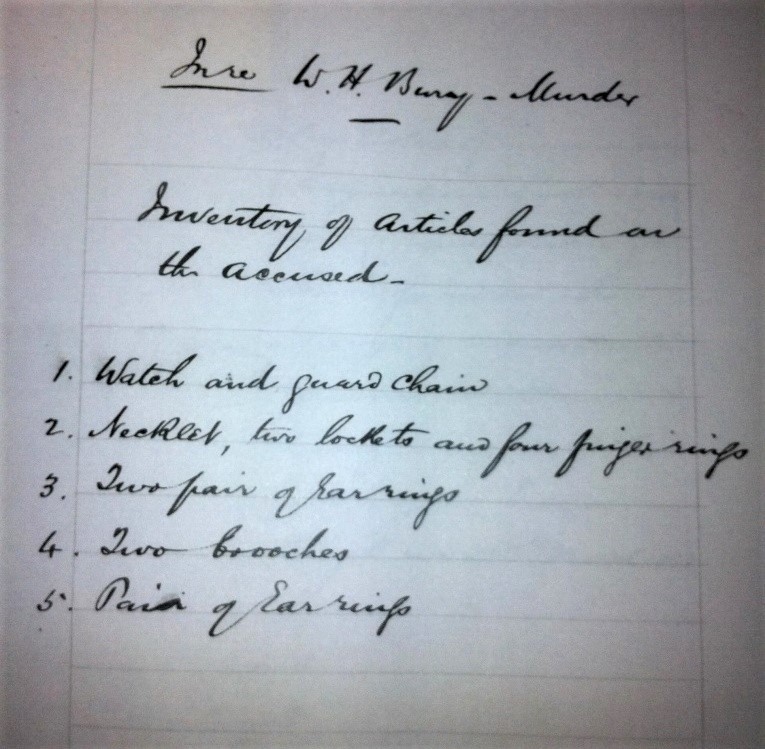 In re W. H. Bury - Murder
Inventory of Articles found on
the accused -
1. Watch and guard chain
2. Necklet, two lockets and four finger rings
3. Two pair of Ear rings
4. Two brooches
5. Pair of Ear rings